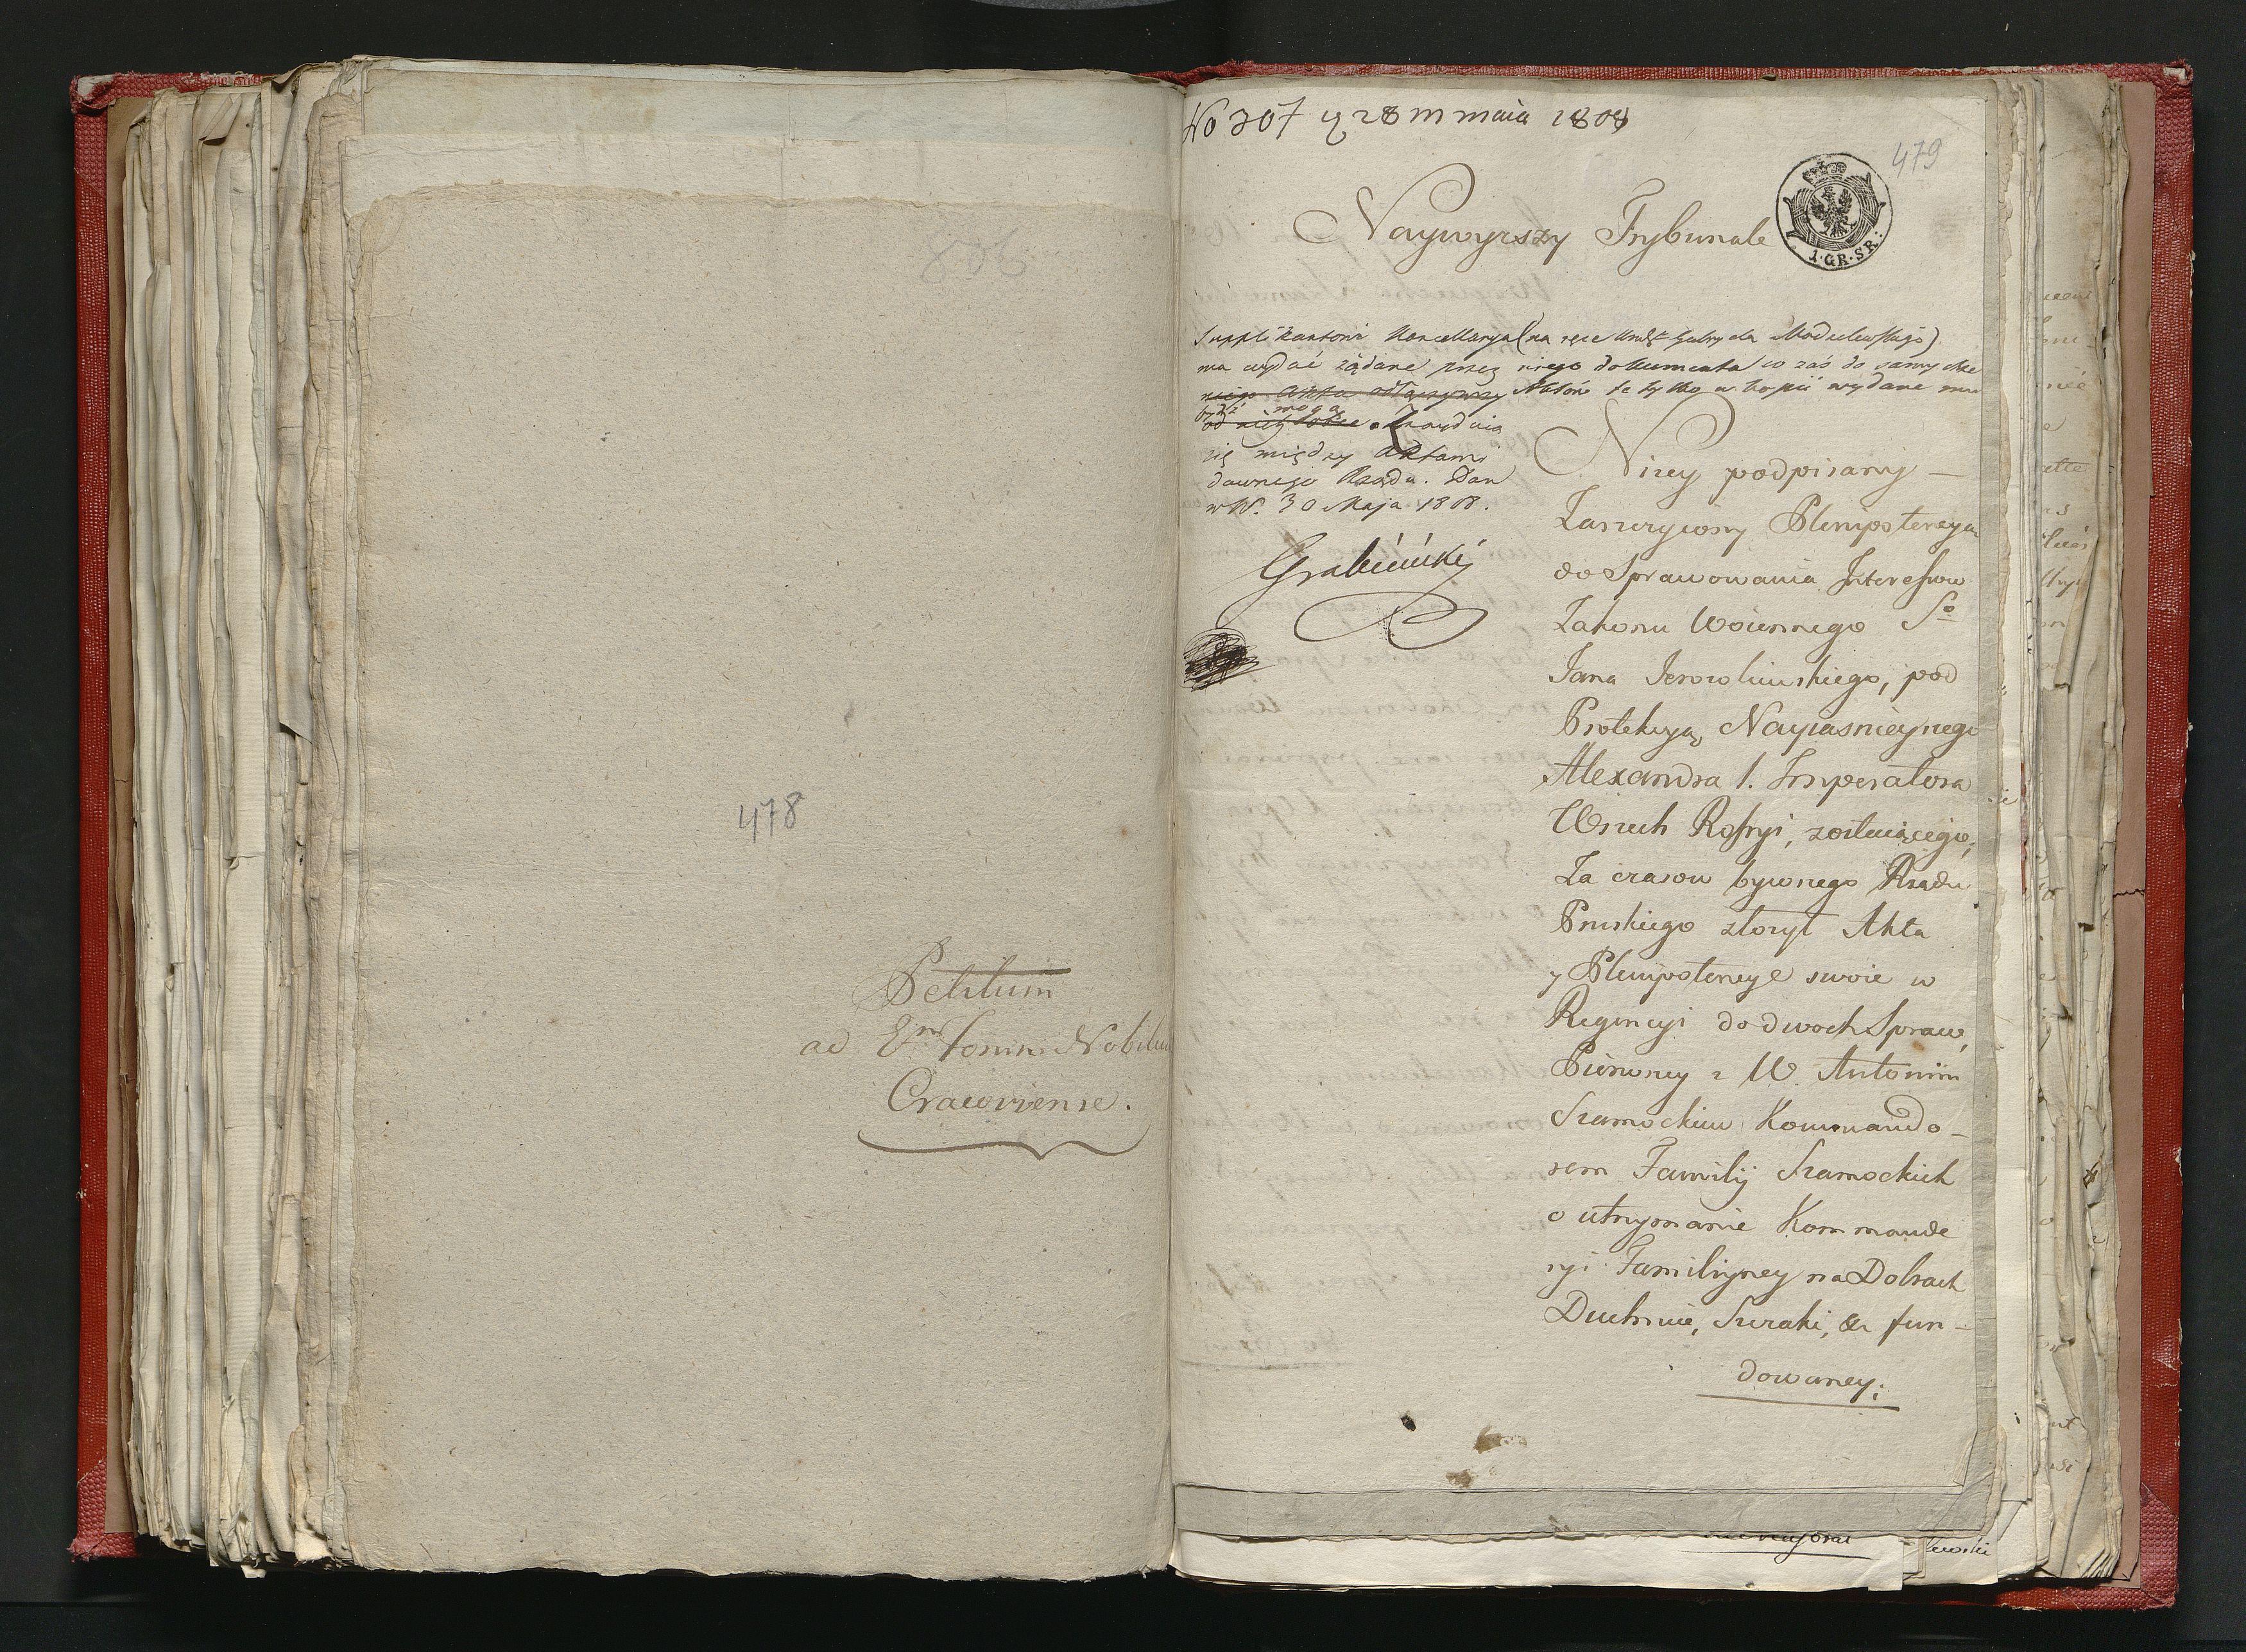 478
Petitum
ad Forum Nobilium
Cracoviense.
No 307 28 m maia 1808
479
1·GR·SR:
Naywyższy Trybunale
Supplikantowi Kancellarya (na ręce Gabryela Modzelewskiego)
ma wydać żądane przez niego dokumenta co zaś do samych
niego Akta Aktów te tylko w kopii wydane mu
bydź mogą
od niey znayduią
się między Aktami
dawnego Rządu. Dan
w W. 30 Maja 1808.
Grabiński
Niżey podpisany —
Zaszczycony Plenipotencyą
do Sprawowania Interessow
Zakonu Woiennego So
Jana Jerozolimskiego, pod
Protekcyą Nayiasnieyszego
Alexandra 1. Imperatora
Wszech Rossyi, zostaiącego,
Za czasow bywnego Rządu
Pruskiego złozył Akta
y Plenipotencye swoie w
Regencyi do dwoch Spraw,
Pierwszey z W. Antonim
Szamockim Kommando-
rem Familij Szamockich
o utrzymanie Kommande
ryi Familiyney na Dobrach
Duchnice, Szeraki, &c fun-
dowaney;